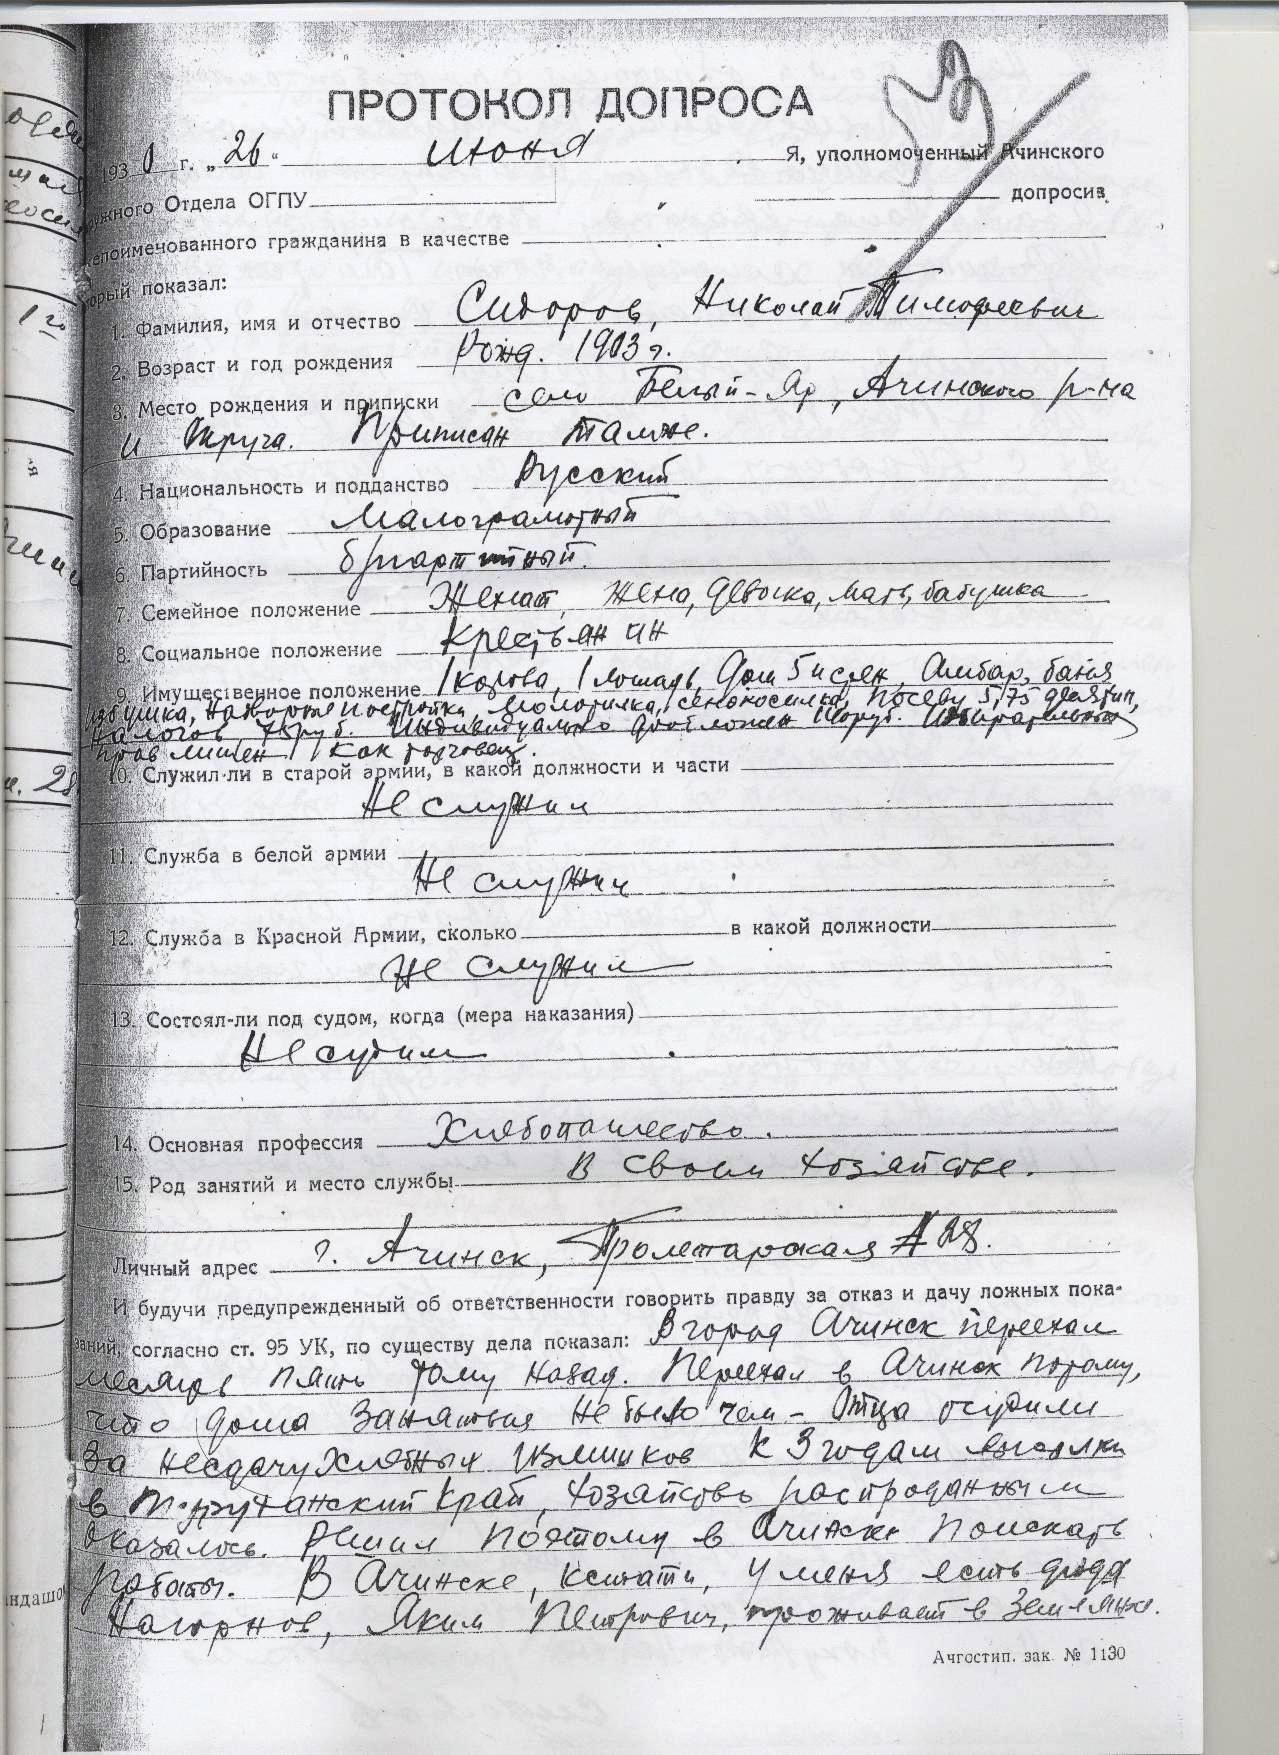 59
ПРОТОКОЛ ДОПРОСА
1930 г. „26" июня Я, уполномоченный Ачинского
окружного Отдела ОГПУ допросив
нижепоименованного гражданина в качестве
который показал:
1. Фамилия, имя и отчество Сидоров, Николай Тимофеевич
2. Возраст и год рождения Рожд. 1903 г.
3. Место рождения и приписки село Белый-Яр, Ачинского р-на
и Округа. Приписан также.
4. Национальность и подданство Русский
5. Образование Малограмотный
6. Партийность б/партийный.
7. Семейное положение Женат, жена, девочка, мать, бабушка
8. Социальное положение Крестьянин
9. Имущественное положение 1 корова, 1 лошадь, Дом 5и стен, Амбар, баня
избушка, надворные постройки, молотилка, сенокосилка, посеву 5,75 десятин,
Налогов 78 руб. Индивидуально обложен руб. Избирательных
прав лишен, как торговец.
10. Служил-ли в старой армии, в какой должности и части
Не служил
11. Служба в белой армии
Не служил
12. Служба в Красной Армии, сколько в какой должности
Не служил
13. Состоял-ли под судом, когда (мера наказания)
Не судим
14. Основная профессия Хлебопашество.
15. Род занятий и место службы В своем хозяйстве.
Личный адрес г. Ачинск, Пролетарская 28.
И будучи предупрежденный об ответственности говорить правду за отказ и дачу ложных пока-
заний, согласно ст. 95 УК, по существу дела показал: В город Ачинск переехал
месяцев пять тому назад. Переехал в Ачинск потому,
что дома заняться не было чем - Отца осудили
за несдачу хлебных излишков к 3 годам высылки
в Туруханский Край, хозяйство распроданным
оказалось. Решил поэтому в Ачинске поискать
работы. В Ачинске, кстати, у меня есть дядя
Нагорнов, Яким Петрович, проживает в Землянке.
Ачгостип. зак. № 1130